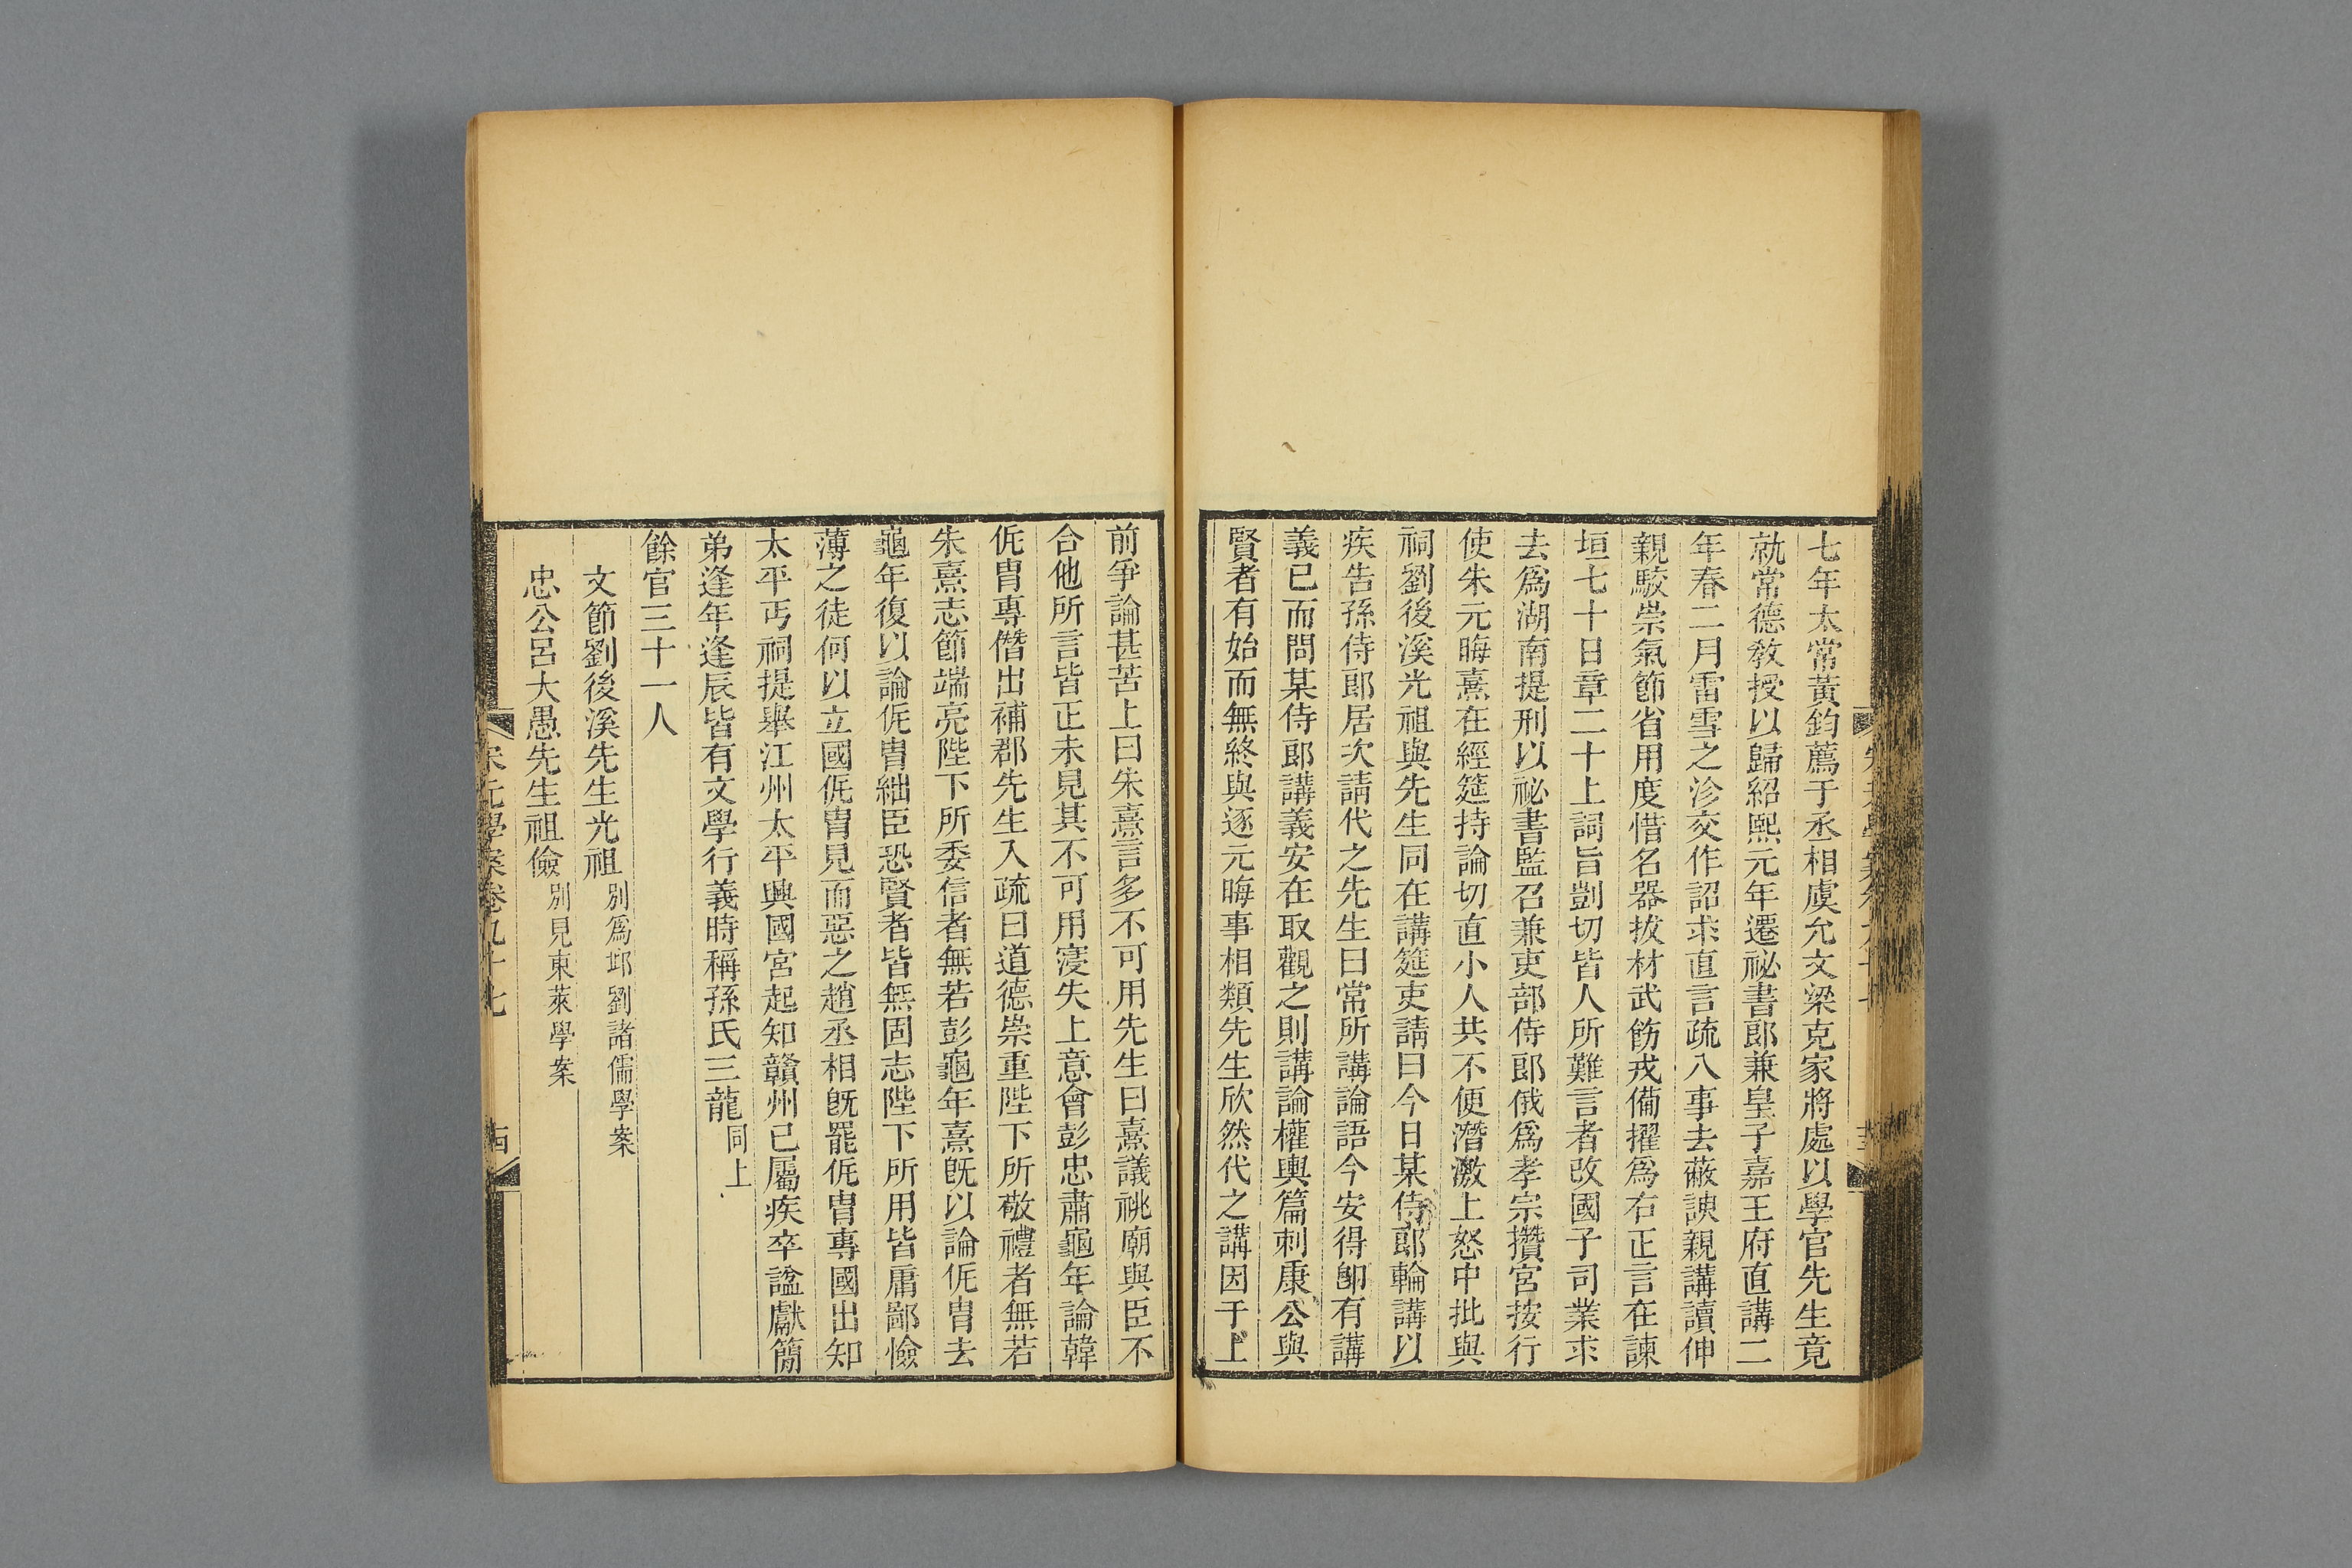 七年太常黃鈞薦于丞相虞允文梁克家將處以學官先生竟
就常德敎授以歸紹熙元年遷祕書郎兼皇子嘉王府直講二
年春二月雷雪之沴交作詔求直言疏八事去蔽諛親講讀伸
親駮崇氣節省用度惜名器拔材武飭戎備擢爲右正言在諫
垣七十日章二十上詞旨剴切皆人所難言者改國子司業求
去爲湖南提刑以祕書監召兼吏部侍郎俄爲孝宗攢宮按行
使朱元晦熹在經筵持論切直小人共不便潛激上怒中批與
祠劉後溪光祖與先生同在講筵吏請曰今日某侍郎輪講以
疾告孫侍郎居次請代之先生曰常所講論語今安得卽有講
義已而問某侍郎講義安在取觀之則講論權輿篇刺康公與
賢者有始而無終與逐元晦事相類先生欣然代之講因于上
前爭論甚苦上曰朱熹言多不可用先生曰熹議祧廟與臣不
合他所言皆正未見其不可用寖失上意會彭忠肅龜年論韓
侂冑專僭出補郡先生入疏曰道德崇重陛下所敬禮者無若
朱熹志節端亮陛下所委信者無若彭龜年熹旣以論侂冑去
龜年復以論侂冑絀臣恐賢者皆無固志陛下所用皆庸鄙憸
薄之徒何以立國侂冑見而惡之趙丞相旣罷侂冑專國出知
太平丐祠提舉江州太平興國宮起知贛州已屬疾卒諡獻簡
弟逢年逢辰皆有文學行義時稱孫氏三龍同上
餘官三十一人
文節劉後溪先生光祖別爲邱劉諸儒學案
忠公呂大愚先生祖儉別見東萊學案
宋元學案卷九十七